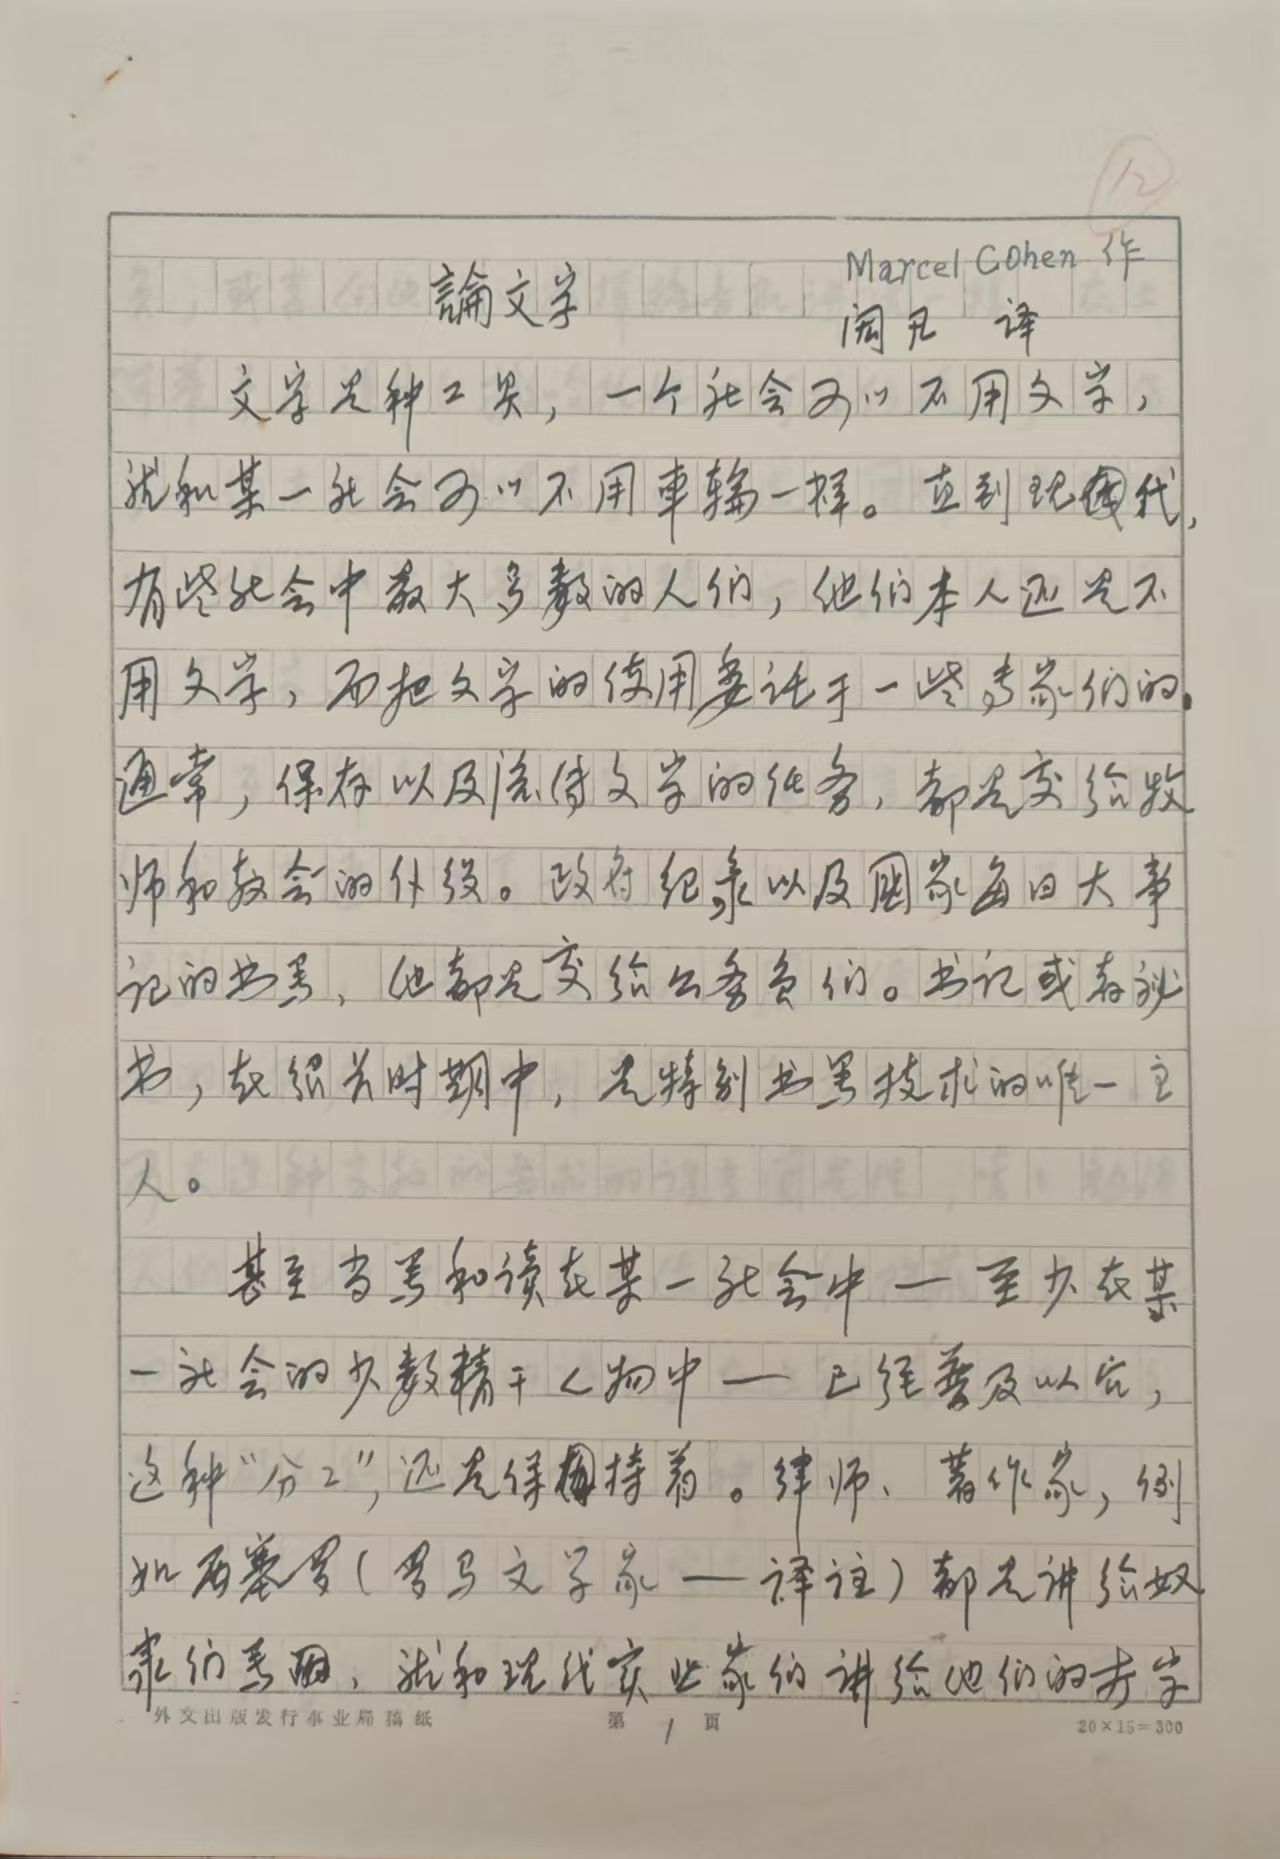 12
Marcel Cohen 作
論文字
闻凡 译
文字是种工具，一个社会可以不用文字，
就和某一社会可以不用車輪一样。直到现代，
有些社会中最大多数的人们，他们本人还是不
用文字，而把文字的使用委託于一些专家们的。
通常，保存以及流传文字的任务，都是交给牧
师和教会的仆役。政府纪录以及国家每日大事
记的书写，也都是交给公务员们。书记或者秘
书，在很长时期中，是特别书写技术的唯一主
人。
甚至当写和读在某一社会中——至少在某
一社会的少数精干人物中——已经普及以后，
这种“分工”，还是保持着。律师、著作家，例
如西塞罗（罗马文学家——译註）都是讲给奴
隶们写，就和现代实业家们讲给他们的打字
外文出版发行事业局稿纸
第 1 页
20×15=300